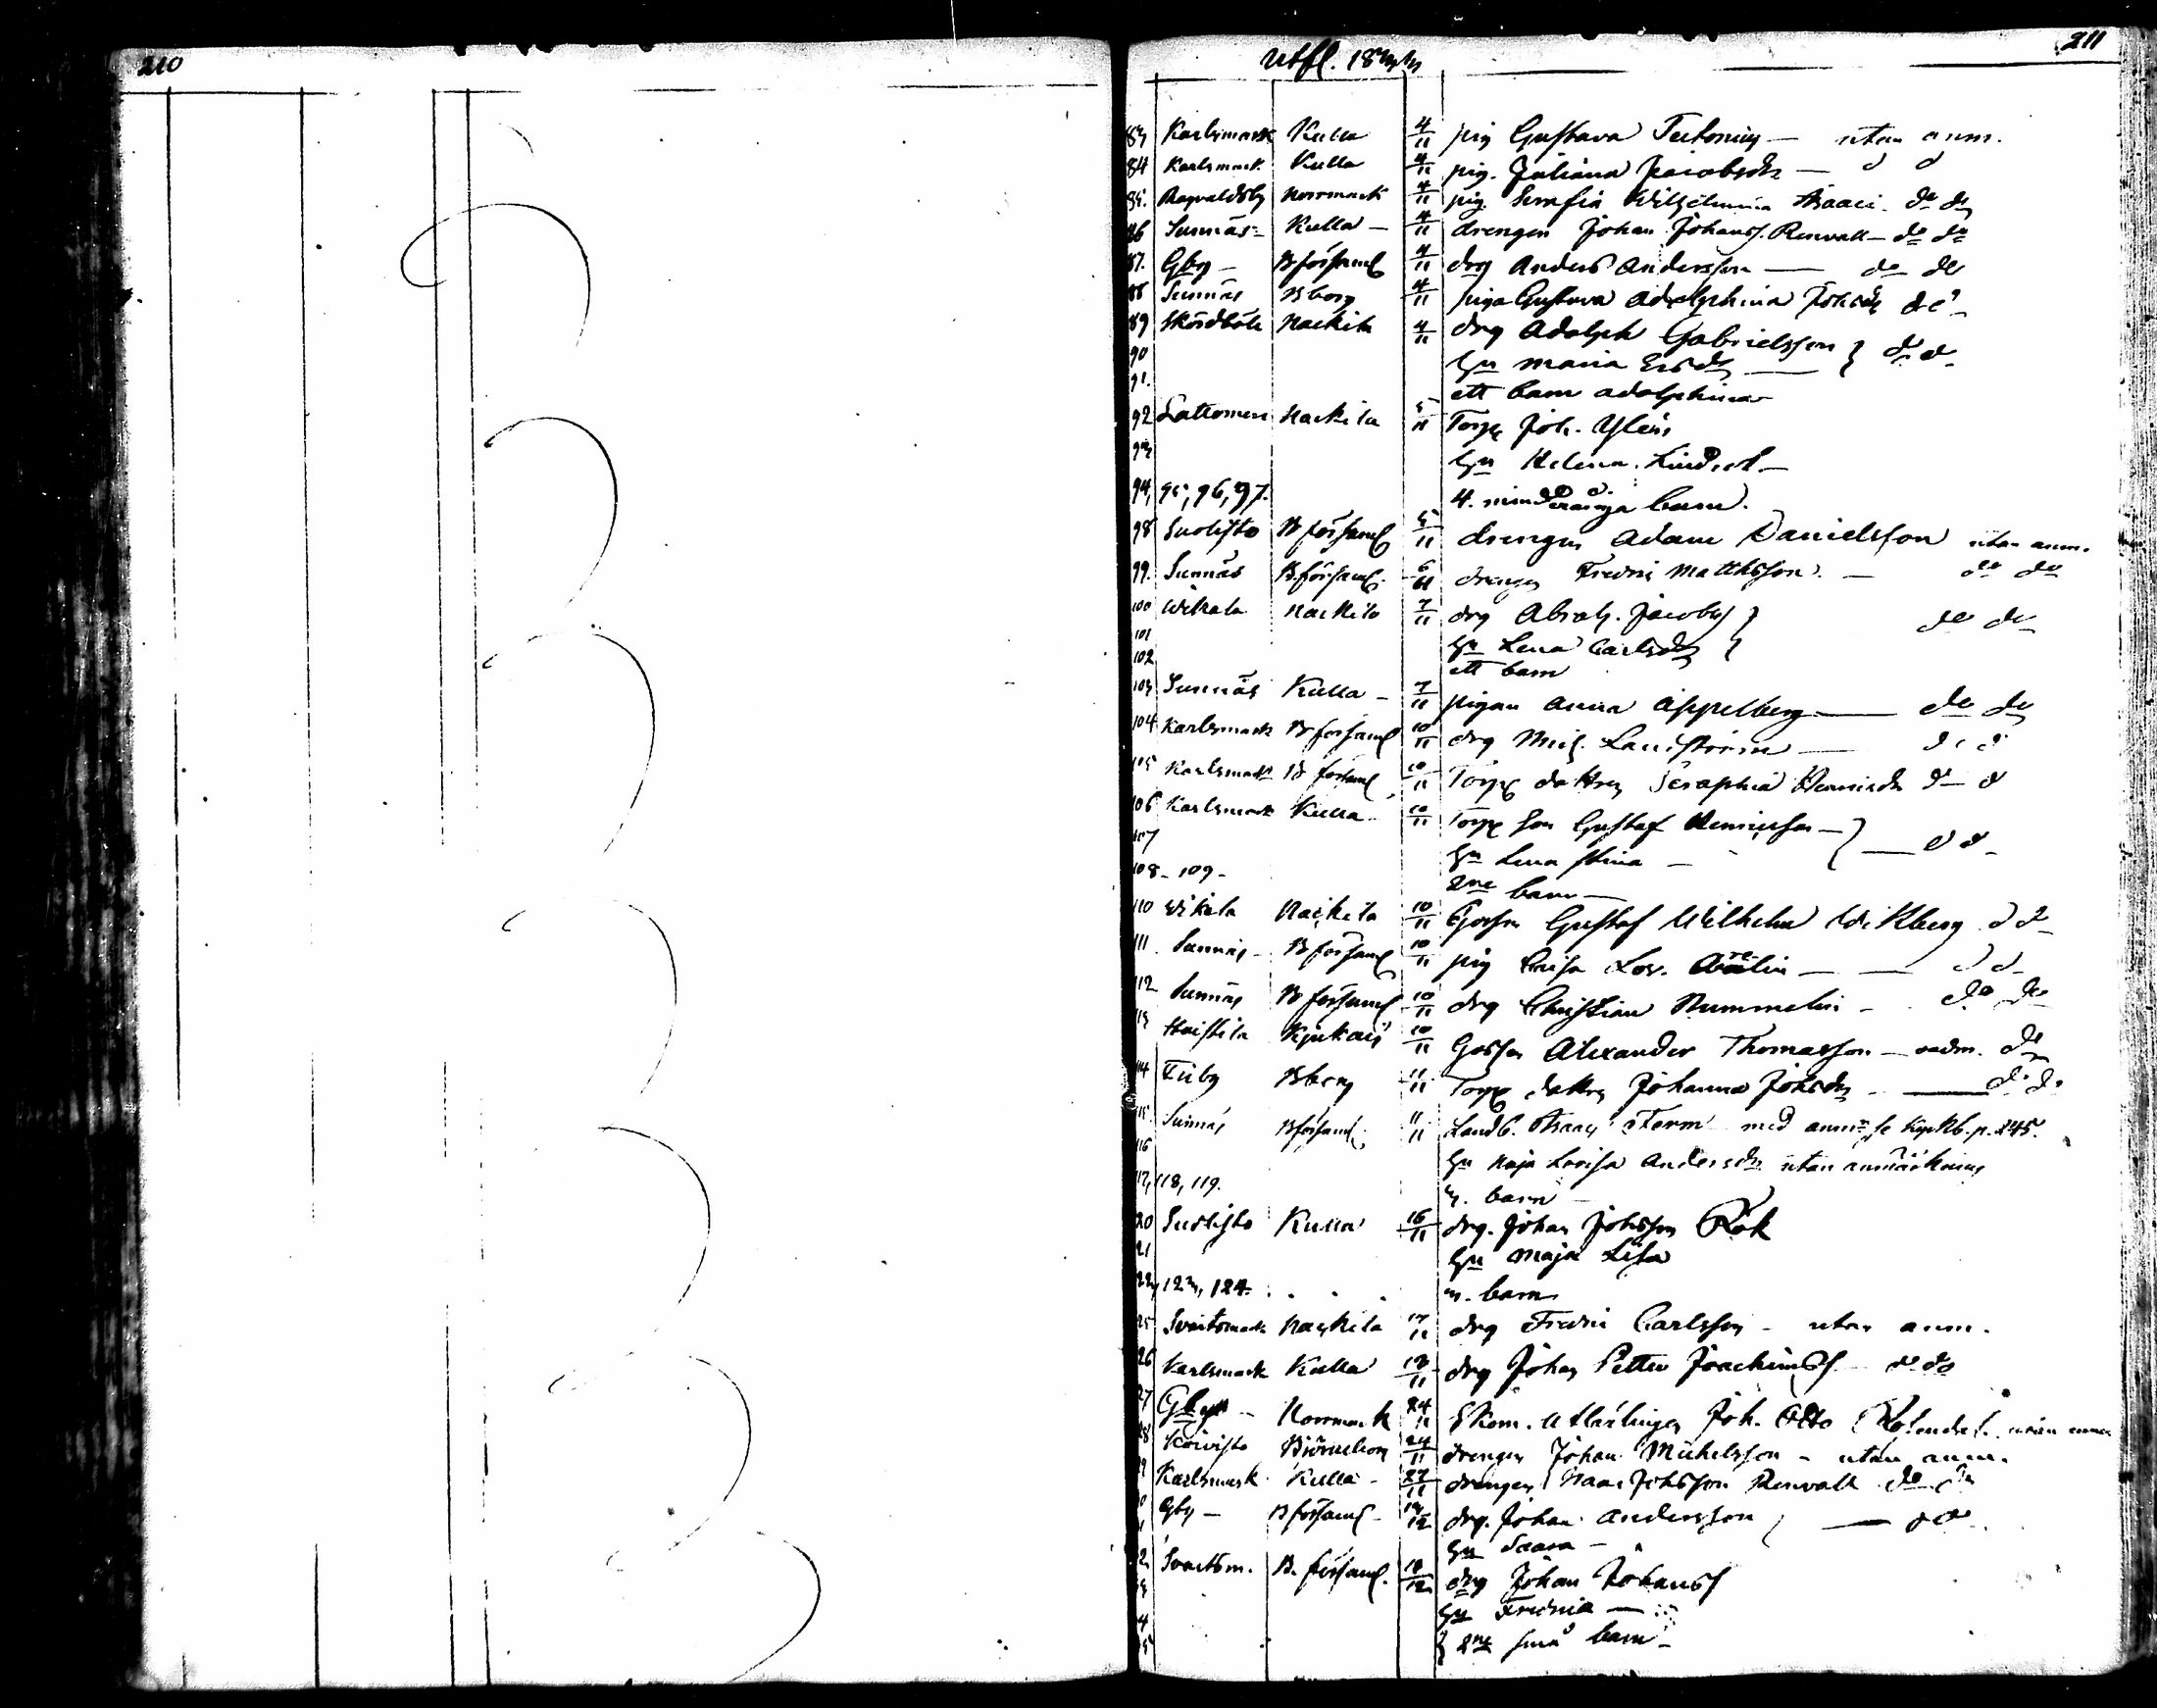 210
211
Utfl. 18
83 Karlsmark Kulla 4/11 pig Gustava utan anm.
84 Karlsmark Kulla 4/11 pig. Juliana Jacobsdr — d d
85. Ragvaldsby Norrmark 4/11 pig. Serafia Wilhelmina Isaaci do do
86 Sunnäs Kulla — 4/11 drengen Johan Johanss. Renvall — do do
87. Gby — B församl 4/11 drg Anders Andersson — do do
88 Sunnäs Bborg 4/11 piga Gustava Adolphina Johsdr do
89 Skördböle Nackila 4/11 drg Adolph Gabrielsson } do do
90 hu Maria Ersdr
91. ett barn Adolphina
92 Lattomeri Nackila 5/11 Torp Joh. Ylén
93 hu Helena
94, 95, 96, 97. 4. minderåriga barn.
98 Suolisto B församl 5/11 drengen Adam Danielsson utan anm.
99. Sunnäs B. församl. 6/11 drengen Fredric Matthsson. — do do
100 Wikala Nackila 7/11 drg Abrah. Jacobss } do do
101 hu Lena Carlsdr }
102 ett barn
103 Sunnäs Kulla — 7/11 pigan Anna Appelberg — do do
104 Karlsmark B församl 10/11 drg Mich. — d d
105 Karlsmark B församl 10/11 Torp dottren Seraphia Henricsdr d d
106 Karlsmark Kulla 10/11 Torp son Gustaf Henricsson — } — d d
107 hu Lena Stina —
108 - 109 - 2ne barn —
110 Wikala Nackila 10/11 Gossen Gustaf Wilhelm Wikberg d d
111. Sunnäs — B församl 10/11 pig Lov. — d d
112 Sunnäs B församl 10/11 drg Christian Rummelin — do do
113 Haistila Kjukais 10/11 Gossen Alexander Thomasson — do
114 Tüby Bborg 11/11 Torp dottren Johanna Johsdr — d. d.
115. Sunnäs B församl. 11/11 Landb. Isaac Storm med anm. se Kyrkb. p. 245.
116 hu Maja Lovisa Andersdr utan anmärkning
117, 118, 119. 3. barn —
120 Suolisto Kulla 16/11 drg. Johan Johsson Rök
21 hu Maja Lisa
22, 123, 124. 3. barn
25 Svartsmark Nackila 17/11 drg Fredric Carlsson — utan anm.
26 Karlsmark Kulla 18/11 drg Johan Petter Joachimss do do
27 Gby — Norrmark 24/11 Skom. utlärlingen Joh. Otto utan anm
28 Koivisto Björneborg 24/11 drengen Johan Michelsson — utan anm.
29 Karlsmark Kulla — 27/11 drengen Isaac Johsson Renvall do do
0 Gby — B församl — /12 drg. Johan Andersson } — do
1 hu Saara —
2 Svartsm. B. församl. 18/12 drg Johan Johanss
3 hu Fredrica —
4 } 2ne små barn —
5